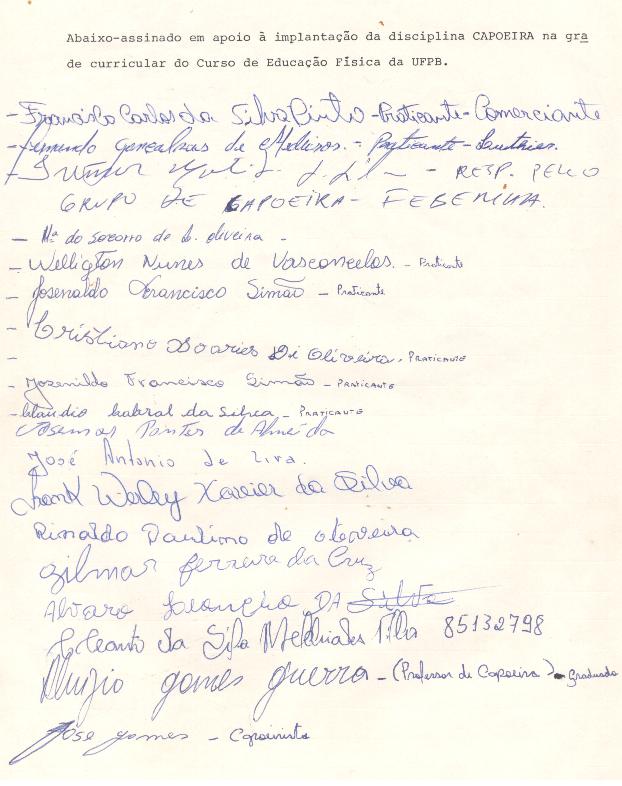 Abaixo-assinado em apoio à implantação da disciplina CAPOEIRA na gra
de curricular do Curso de Educação Física da UFPB.
- Francisco Carlos da Silva Pinto - Praticante - Comerciante
- Fernando Gonçalves de Medeiros. - Praticante -
- RESP. PELO
GRUPO DE CAPOEIRA - FEBEMINA.
- Mª do Socorro de b. oliveira -
- Welligton Nunes de Vasconcelos. - Praticante
- Josenaldo Francisco Simão - Praticante
- Cristiano Soaries Di Oliveira. PRATICANTE
- Josenildo Francisco Simão - PRATICANTE
- Claudio Cabral da Silva - PRATICANTE
Josemar Pontes de Almeida
José Antonio de Lira.
Frank Warley Xavier da Silva
Rinaldo de oliveira
Gilmar Ferreira da Cruz
Alvaro DA Silva
da Silva Melchiades Filho 85132798
Aluizio gomes guerra - (Professor de Capoeira) - Graduado
José gomes - Capoeirista